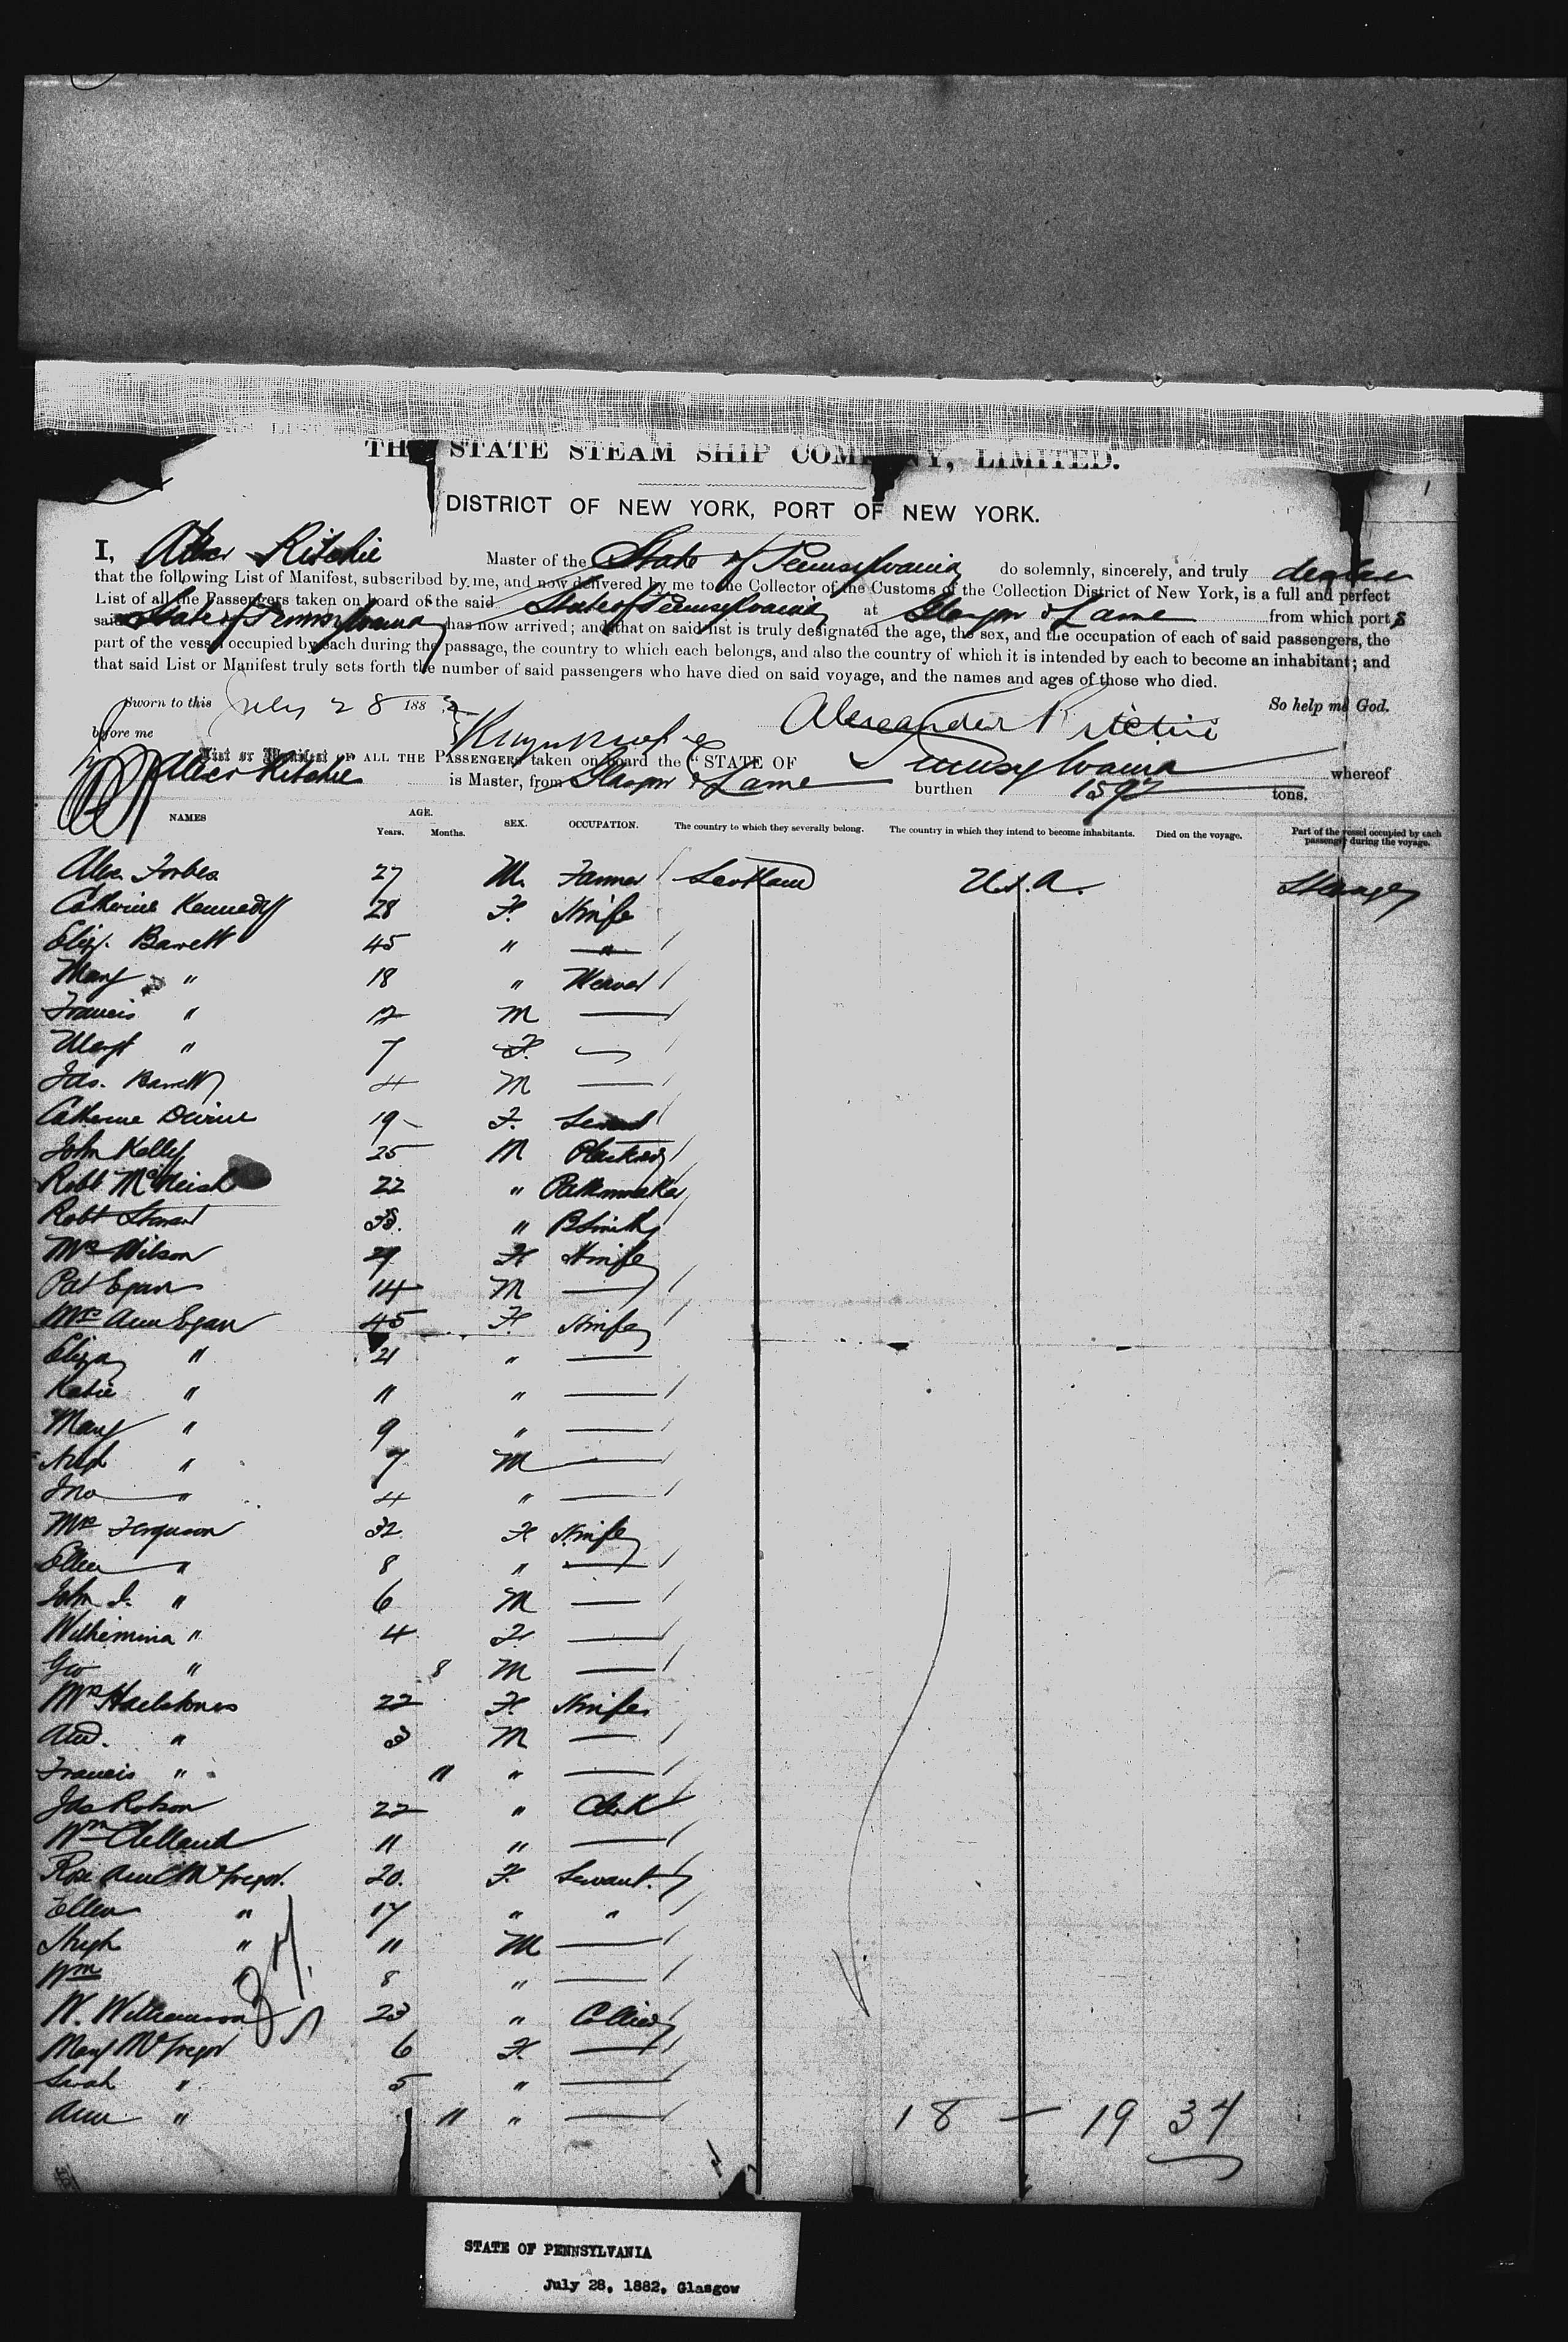 THE STATE STEAM SHIP COMPANY, LIMITED.
DISTRICT OF NEW YORK, PORT OF NEW YORK.
I, Alexr Ritchie Master of the State of Pennsylvania do solemnly, sincerely, and truly declare
that the following List of Manifest, subscribed by me, and now delivered by me to the Collector of the Customs of the Collection District of New York, is a full and perfect
List of all the Passengers taken on board of the said State of Pennsylvania at Glasgow & Larne from which port s
said State of Pennsylvania has now arrived; and that on said list is truly designated the age, the sex, and the occupation of each of said passengers, the
part of the vessel occupied by each during the passage, the country to which each belongs, and also the country of which it is intended by each to become an inhabitant; and
that said List or Manifest truly sets forth the number of said passengers who have died on said voyage, and the names and ages of those who died.
Sworn to this July 28 1882 Alexander Ritchie So help me God.
before me
List or Manifest OF ALL THE PASSENGERS taken on board the "STATE OF Pennsylvania whereof
Alexr Ritchie is Master, from Glasgow & Larne burthen 1597 tons.
NAMES AGE. Years. Months. SEX. OCCUPATION. The country to which they severally belong. The country in which they intend to become inhabitants. Died on the voyage. Part of the vessel occupied by each passenger during the voyage.
Alex. Forbes 27 M. Farmer Scotland U.S.A. Steerage
Catherine Kennedy 28 F. H'wife
Eliz. Barrett 45 " "
Mary " 18 " Weaver
Francis " 12 M —
Margt " 7 F. —
Jas. Barrett 4 M —
Catherine 19 F. Servant
John Kelly 25 M
Robt McNeish 22 " Patternmaker
Robt Stewart 38. " BSmith
Mrs Wilson 29 F H'wife
Pat Egan 14 M —
Mrs Ann Egan 45 F. H'wife
Eliza " 21 " —
Katie " 11 " —
Mary " 9 " —
Hugh " 7 M —
Jno " 4 " —
Mrs Ferguson 32 F H'wife
Ellen " 8 " —
John I. " 6 M —
Wilhimina " 4 F —
Geo " 8 M —
Mrs Hailstones 22 F. H'wife
And. " 3 M —
Francis " 11 " —
Jas Robson 22 " Clerk
Wm Clelland 11 " —
Rose Ann McGregor. 20. F. Servant.
Ellen " 17 " "
Hugh " 11 M —
Wm " 8 " —
W. Williamson 23 " Collier
Mary McGregor 6 F. —
Sarah " 5 " —
Ann " 11 " —
37
18 — 19 34
STATE OF PENNSYLVANIA
July 28, 1882, Glasgow